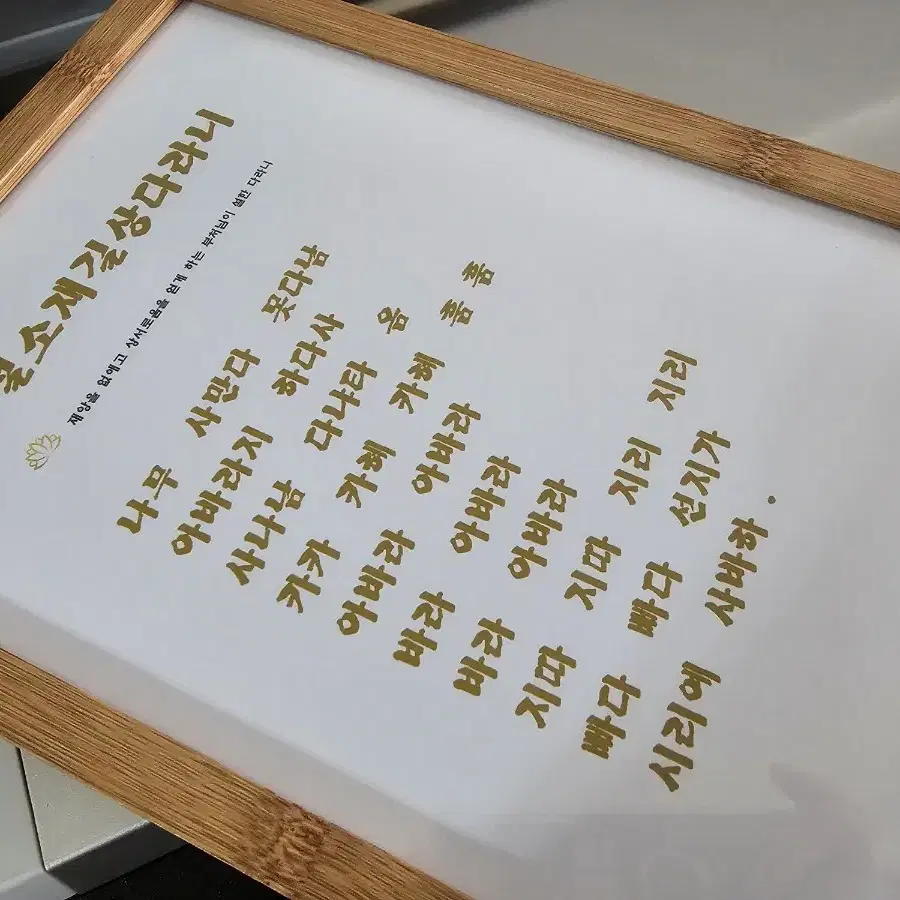 설소재길상다라니
재앙을 없애고 상서로움을 얻게 하는 부처님이 설한 다라니
나무 사만다 못다남
아바라지 하다사
사나남 다냐타 옴
카카 카혜 카혜 훔 훔
아바라 아바라
바라 아바라
바라 아바라
지따 지따 지리 지리
빠다 빠다 선지가
시리에 사바하.